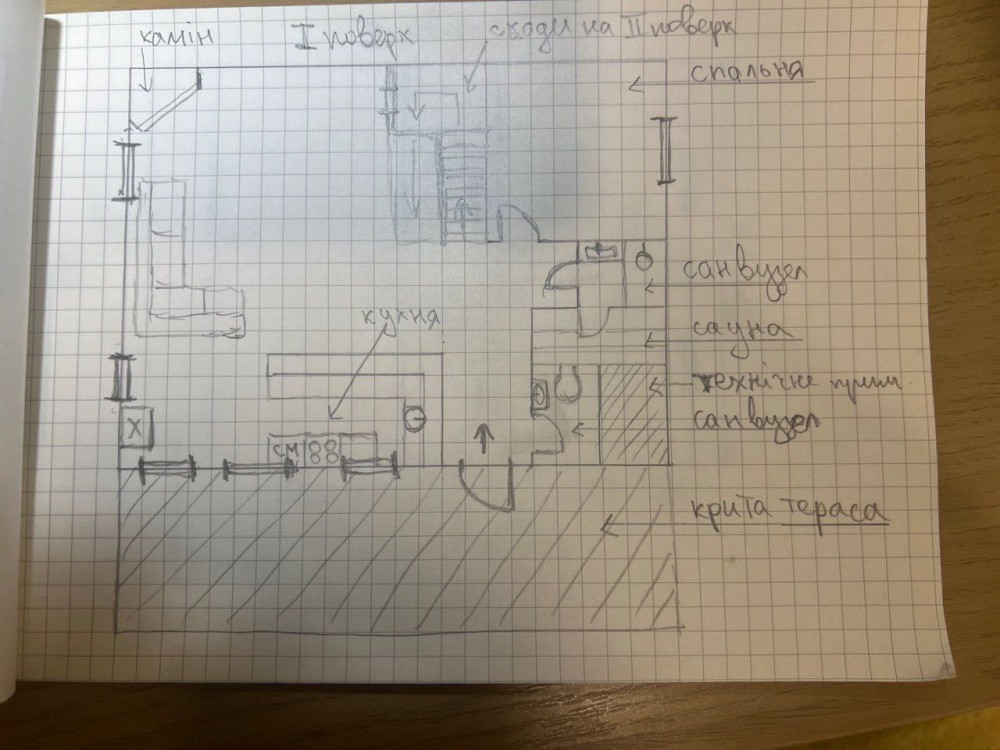 камін
I поверх
сходи на II поверх
спальня
санвузел
кухня
сауна
технічне прим.
санвузел
X
СМ
крита тераса